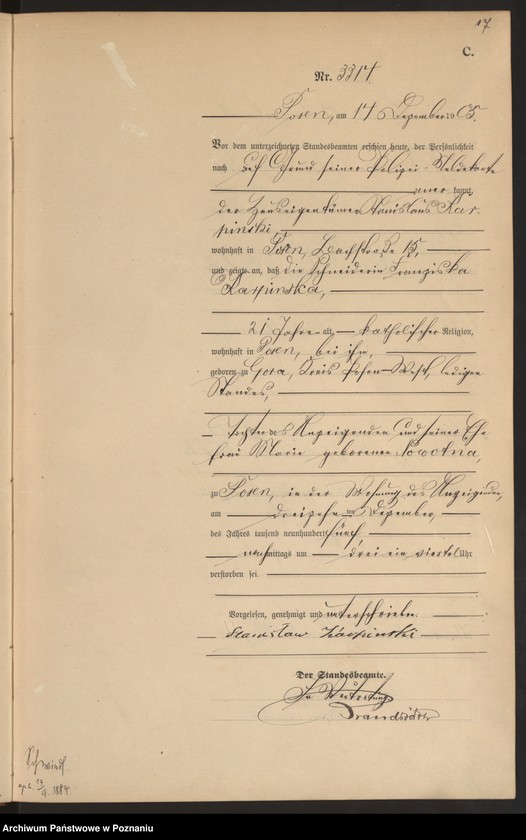 17
C.
Nr. 3314
Posen, am 14 Dezember 1905.
Vor dem unterzeichneten Standesbeamten erschien heute, der Persönlichkeit
nach auf Grund seiner Polizei-Meldekarte
aner kannt,
der Hauseigentümer Stanislaus Kar-
pinski,
wohnhaft in Posen, Bachstraße 15,
und zeigte an, daß die Schneiderin Franziska
Karpinska,
21 Jahre alt, katholischer Religion,
wohnhaft in Posen, bei ihm,
geboren zu Gora, Kreis Posen-West, ledigen
Standes,
Tochter des Anzeigenden und seiner Ehe-
frau Marie geborenen Nowotna,
zu Posen, in der Wohnung des Anzeigenden,
am dreizehnten Dezember
des Jahres tausend neunhundert fünf,
nachmittags um drei ein viertel Uhr
verstorben sei.
Vorgelesen, genehmigt und unterschrieben.
Stanisław Karpinski
Der Standesbeamte.
In Vertretung
9. 1884
Archiwum Państwowe w Poznaniu